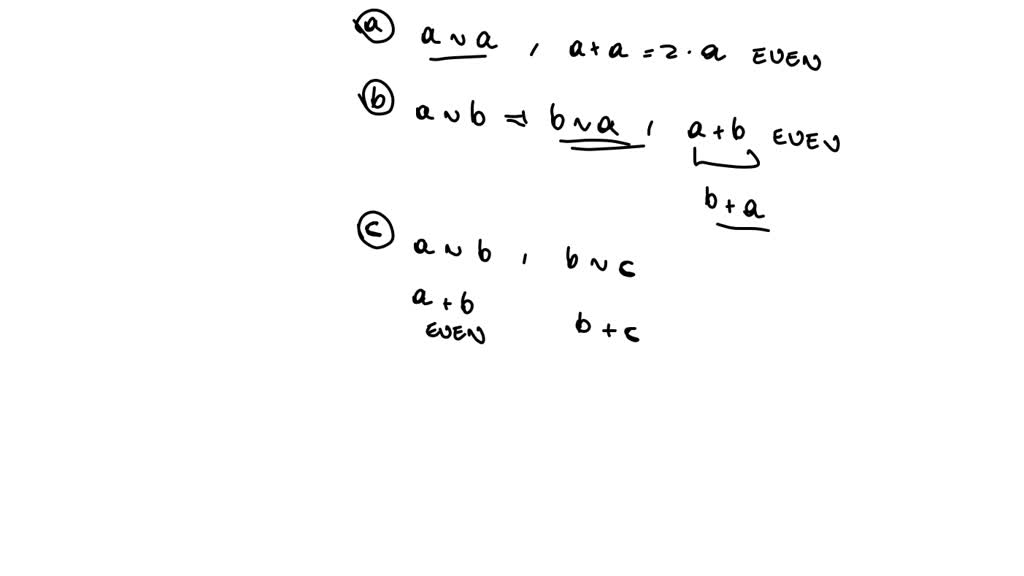 (a) a ~ a , a + a = 2 · a EVEN
(b) a ~ b ⇒ b ~ a , a + b EVEN
b + a
(c) a ~ b , b ~ c
a + b b + c
EVEN